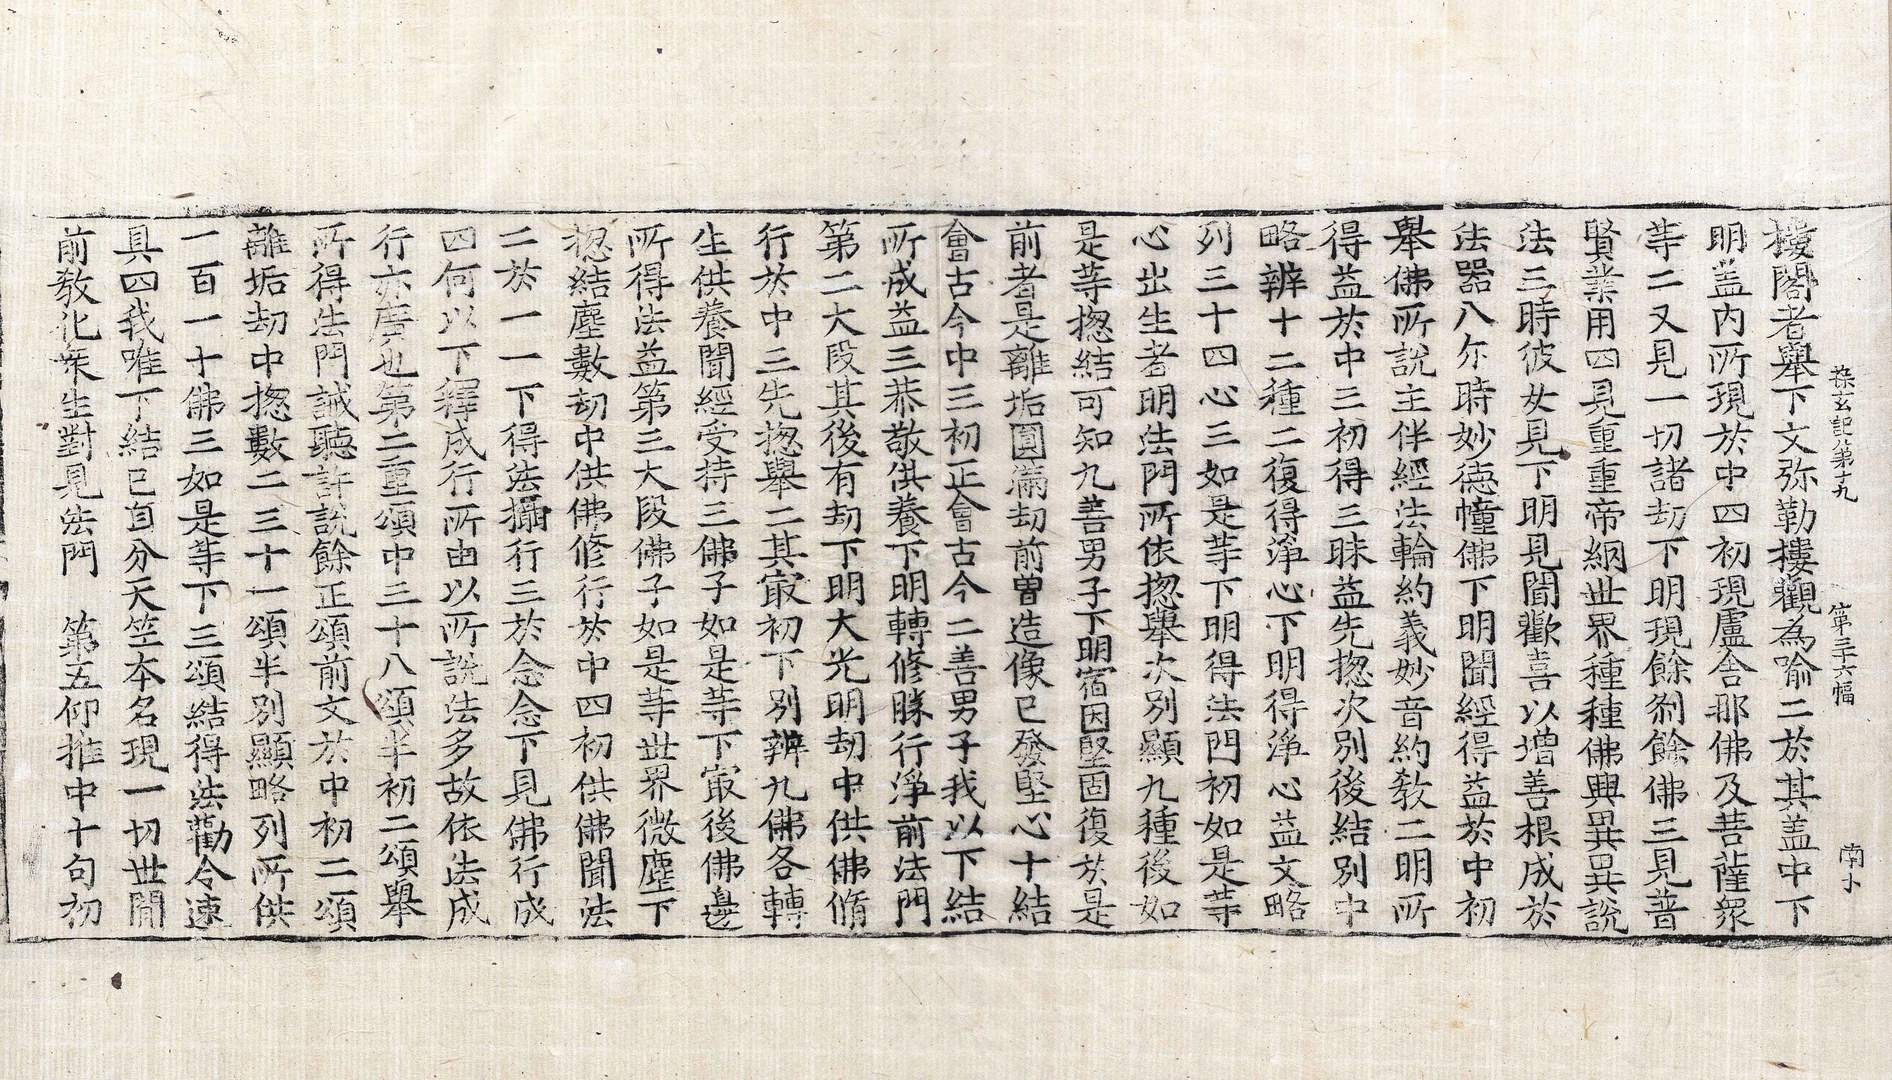 探玄記第十九 第三十六幅 南卜
樓閣者舉下文弥勒樓觀為喻二於其盖中下
明盖内所現於中四初現盧舎那佛及菩薩眾
等二又見一切諸劫下明現餘刹餘佛三見普
賢業用四見重重帝網世界種種佛興異異說
法三時彼女見下明見聞歡喜以增善根成於
法器八尓時妙德幢佛下明聞經得益於中初
舉佛所說主伴經法輪約義妙音約教二明所
得益於中三初得三昧益先揔次別後結別中
略辨十二種二復得淨心下明得淨心益文略
列三十四心三如是等下明得法門初如是等
心出生者明法門所依揔舉次別顯九種後如
是等揔結可知九善男子下明宿因堅固復於是
前者是離垢圓滿劫前曽造像已發堅心十結
會古今中三初正會古今二善男子我以下結
所成益三恭敬供養下明轉修勝行淨前法門
第二大段其後有劫下明大光明劫中供佛脩
行於中三先揔舉二其㝡初下別辨九佛各轉
生供養聞經受持三佛子如是等下㝡後佛邊
所得法益第三大段佛子如是等世界微塵下
揔結塵數劫中供佛修行於中四初供佛聞法
二於一一下得法攝行三於念念下見佛行成
四何以下釋成行所由以所說法多故依法成
行亦廣也第二重頌中三十八頌半初二頌舉
所得法門誡聽許說餘正頌前文於中初二頌
離垢劫中揔數二三十一頌半別顯略列所供
一百一十佛三如是等下三頌結得法勸令速
具四我唯下結已自分天竺本名現一切世間
前教化衆生對見法門 第五仰推中十句初